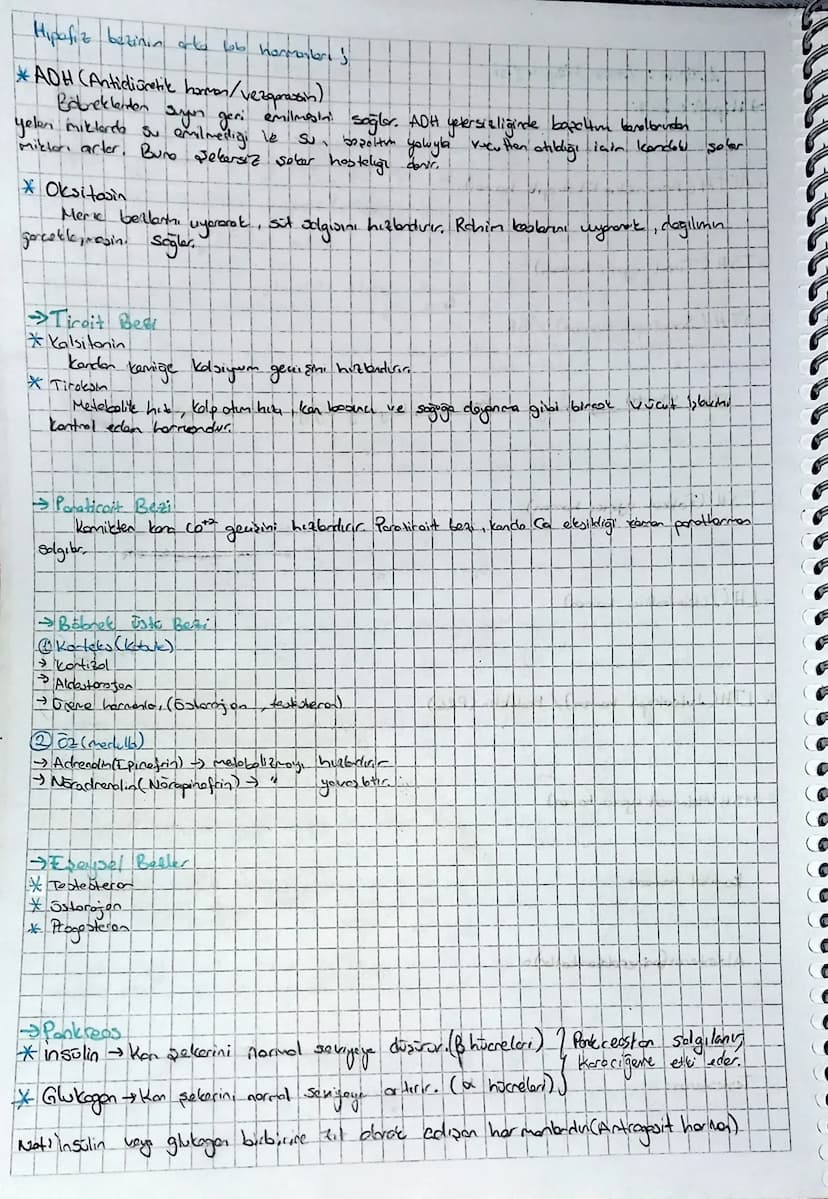 Hipofiz bezinin orta lob hormonları;
* ADH (Antidiüretik hormon/vezopressin)
Böbreklerden suyun geri emilmesini sağlar. ADH yetersizliğinde boşaltım kanallarından
yeteri miktarda su emilmediği ve su, boşaltım yoluyla vücuttan atıldığı için kandaki şeker
miktarı artar. Buna şekersiz şeker hastalığı denir.
* Oksitosin
Meme bezlerini uyararak, süt salgısını hızlandırır. Rahim kaslarını uyararak, doğumun
gerçekleşmesini sağlar.
→Tiroit Bezi
* Kalsitonin
Kandan kemiğe kalsiyum geçişini hızlandırır.
* Tiroksin
Metabolik hız, kalp atım hızı, kan basıncı ve soğuğa dayanma gibi birçok vücut işlevini
kontrol eden hormondur.
→ Paratiroit Bezi
Kemikten kana Ca+2 geçişini hızlandırır. Paratiroit bezi, kanda Ca eksikliği zaman parathormon
salgılar.
→Böbrek Üstü Bezi
① Korteks (Kabuk)
→ Kortizol
→ Aldosteron
→ Üreme hormonları (Östorojen, testesteron)
② Öz (medulla)
→ Adrenalin (Epinefrin) → metabolizmayı hızlandırır
→ Nöradrenalin (Nörepinefrin) → " yavaşlatır.
→Eşeysel Bezler
* Testesteron
* Östorojen
* Progesteron
→Pankreas
* İnsülin → Kan şekerini normal seviyeye düşürür. (β hücreleri) } Pankreastan salgılanır,
Karaciğere etki eder.
* Glukagon → Kan şekerini normal seviyeye artırır. (α hücreleri)
Not: İnsülin veya glukagon birbirine zıt olarak çalışan hormonlardır (Antagonist hormon)